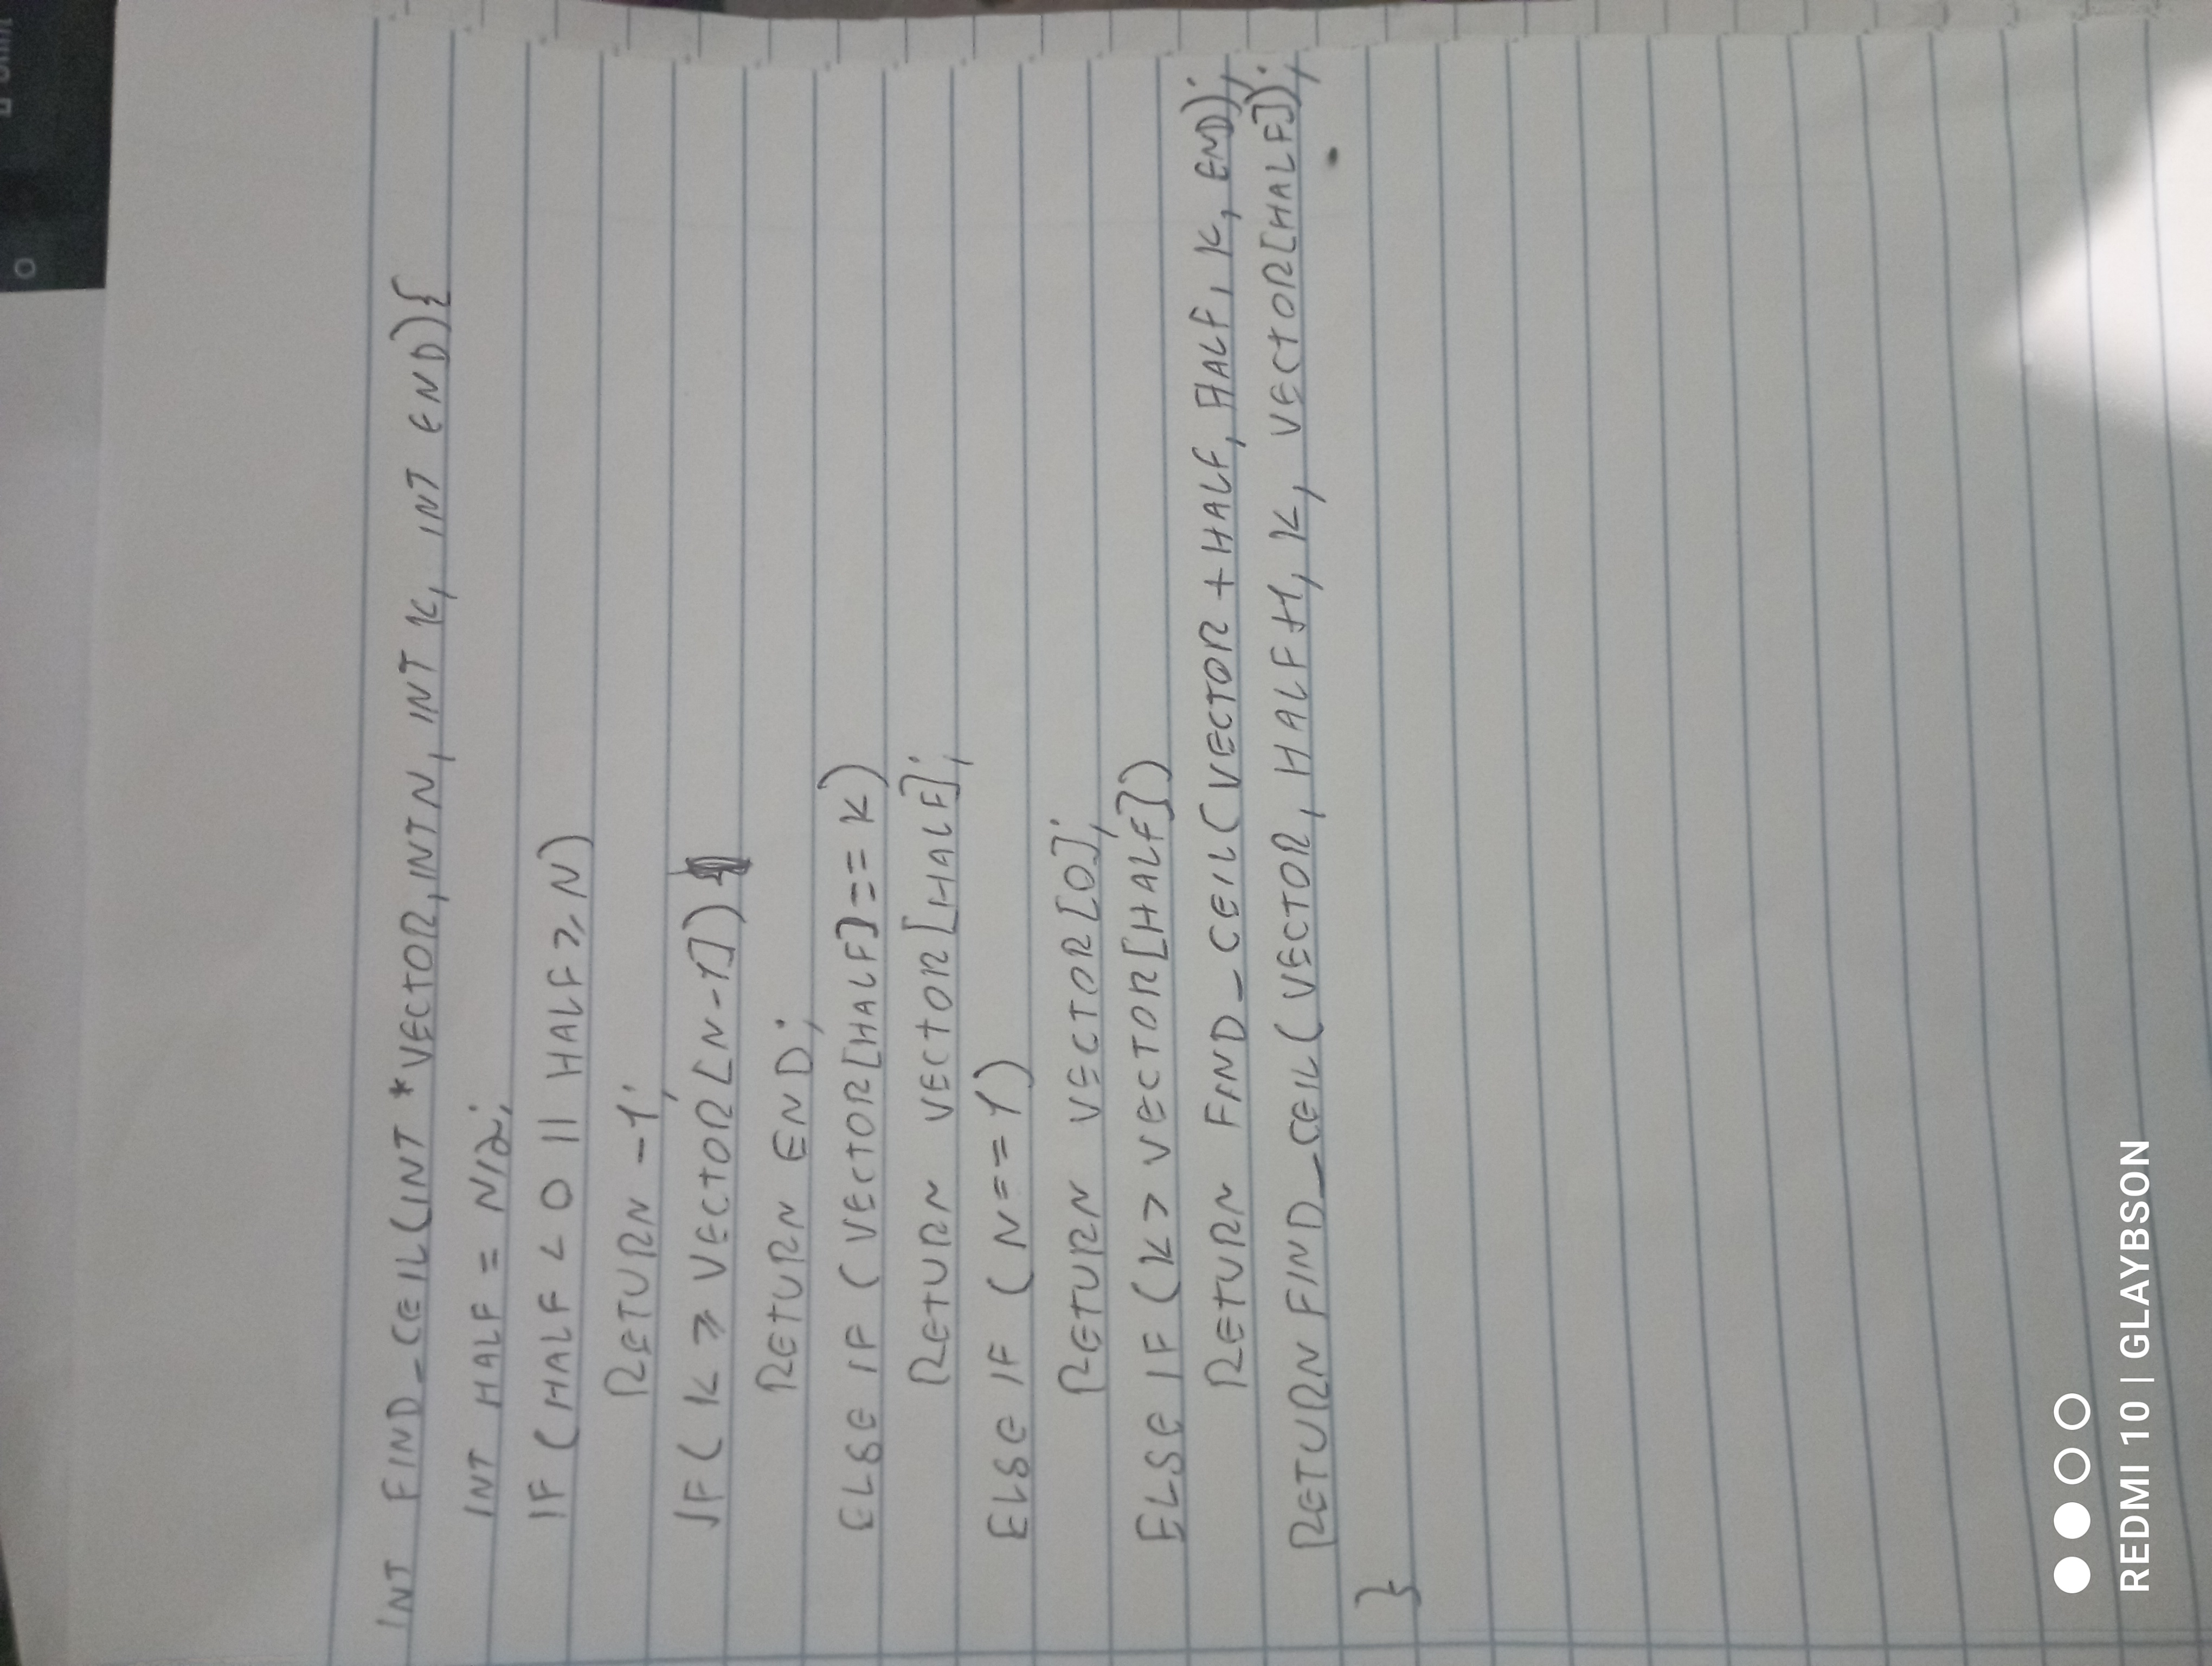 INT FIND_CEIL(INT *VECTOR, INT N, INT K, INT END){
INT HALF = N/2;
IF (HALF < 0 || HALF ≥ N)
RETURN -1;
IF( K ≥ VECTOR[N-1])
RETURN END;
ELSE IF (VECTOR[HALF]== K)
RETURN VECTOR[HALF];
ELSE IF (N==1)
RETURN VECTOR[0];
ELSE IF (K > VECTOR[HALF])
RETURN FIND_CEIL(VECTOR + HALF, HALF, K, END);
RETURN FIND_CEIL(VECTOR, HALF+1, K, VECTOR[HALF]);
}
REDMI 10 | GLAYBSON